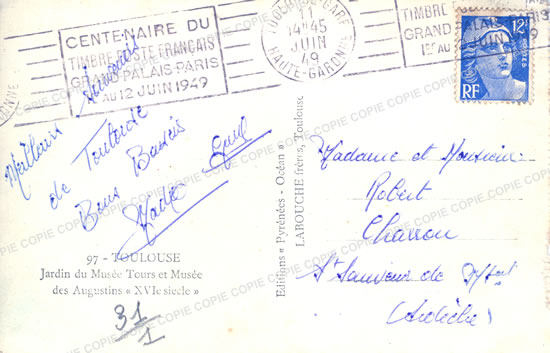 CENTENAIRE DU
TIMBRE POSTE FRANÇAIS
GRAND PALAIS-PARIS
AU 12 JUIN 1949
TOULOUSE-GARE
14-45
JUIN
49
HAUTE-GARONNE
TIMBRE
GRAND
1er AU
12F
POSTES
RF
Meilleurs
Souvenirs
de Toulouse
Bons Baisers
97 - TOULOUSE
Jardin du Musée Tours et Musée
des Augustins « XVIe siècle »
31/1
Editions « Pyrénées - Océan »
LABOUCHE frères, Toulouse
Madame et Monsieur
Robert
Charrou
St Sauveur de
(Ardèche)
COPIE COPIE COPIE COPIE COPIE COPIE